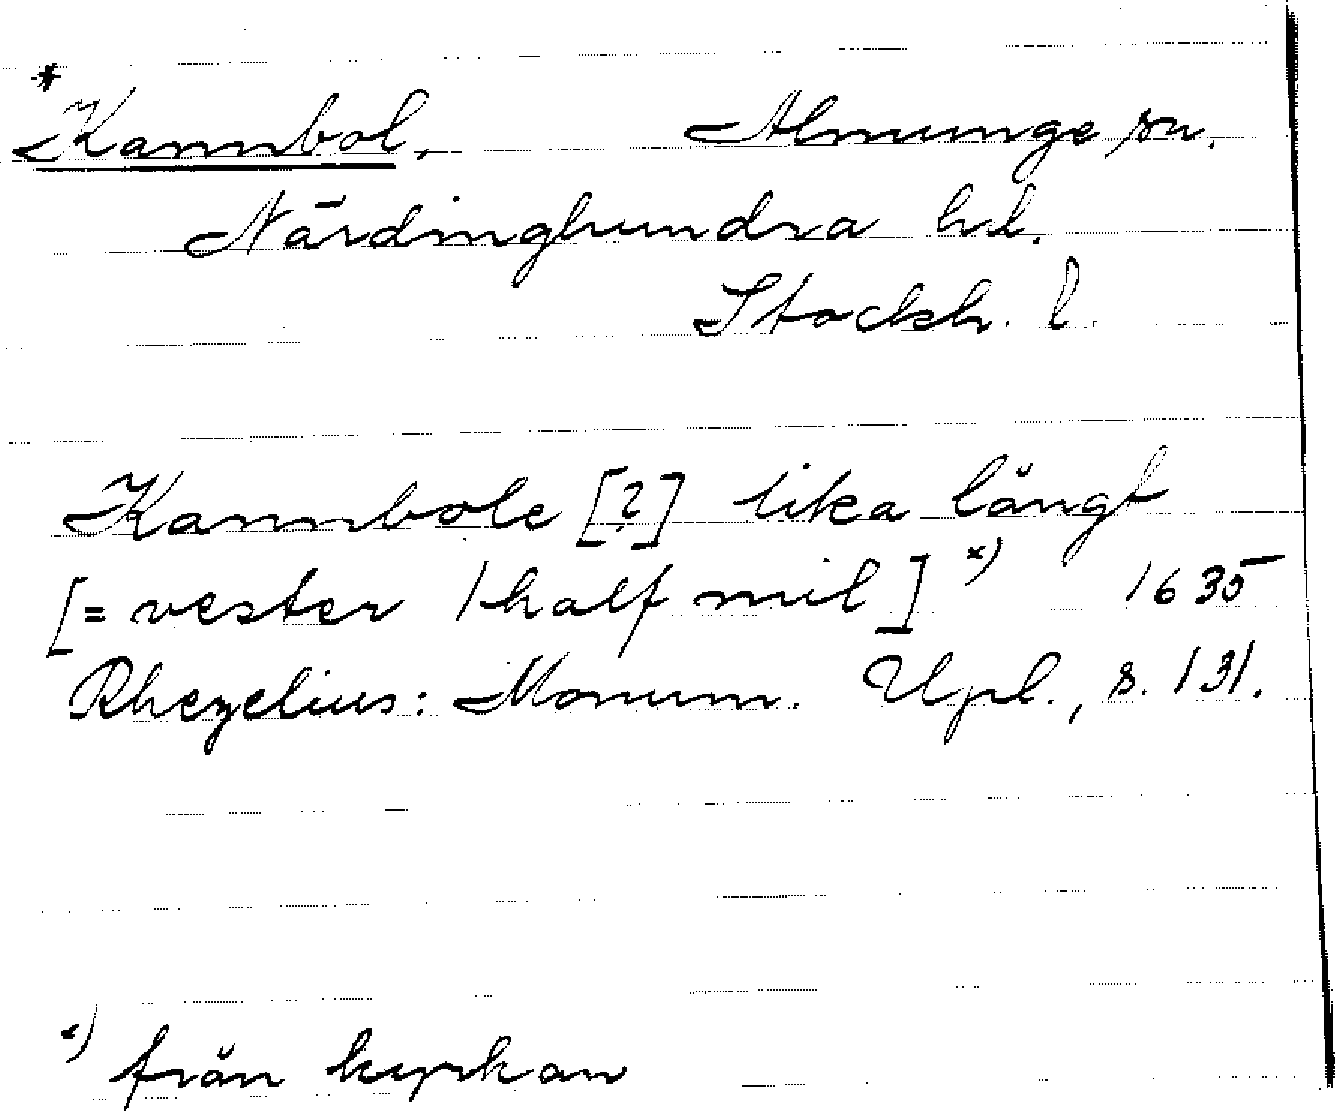 *Kannbol, Almunge sn.
Närdinghundra hd.
Stockh. l.
Kannbole [?] lika långt
[= vester 1 half mil] x) 1635
Rhezelius: Monum. Upl., s. 131.
x) från kyrkan